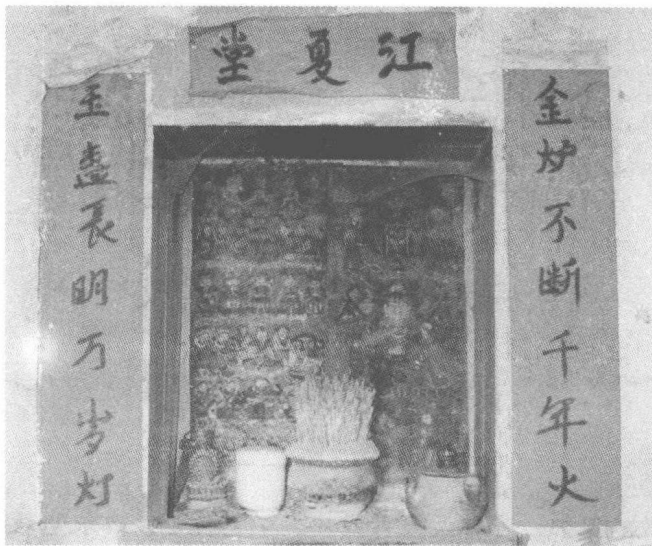 江夏堂
金炉不断千年火
玉盏长明万岁灯